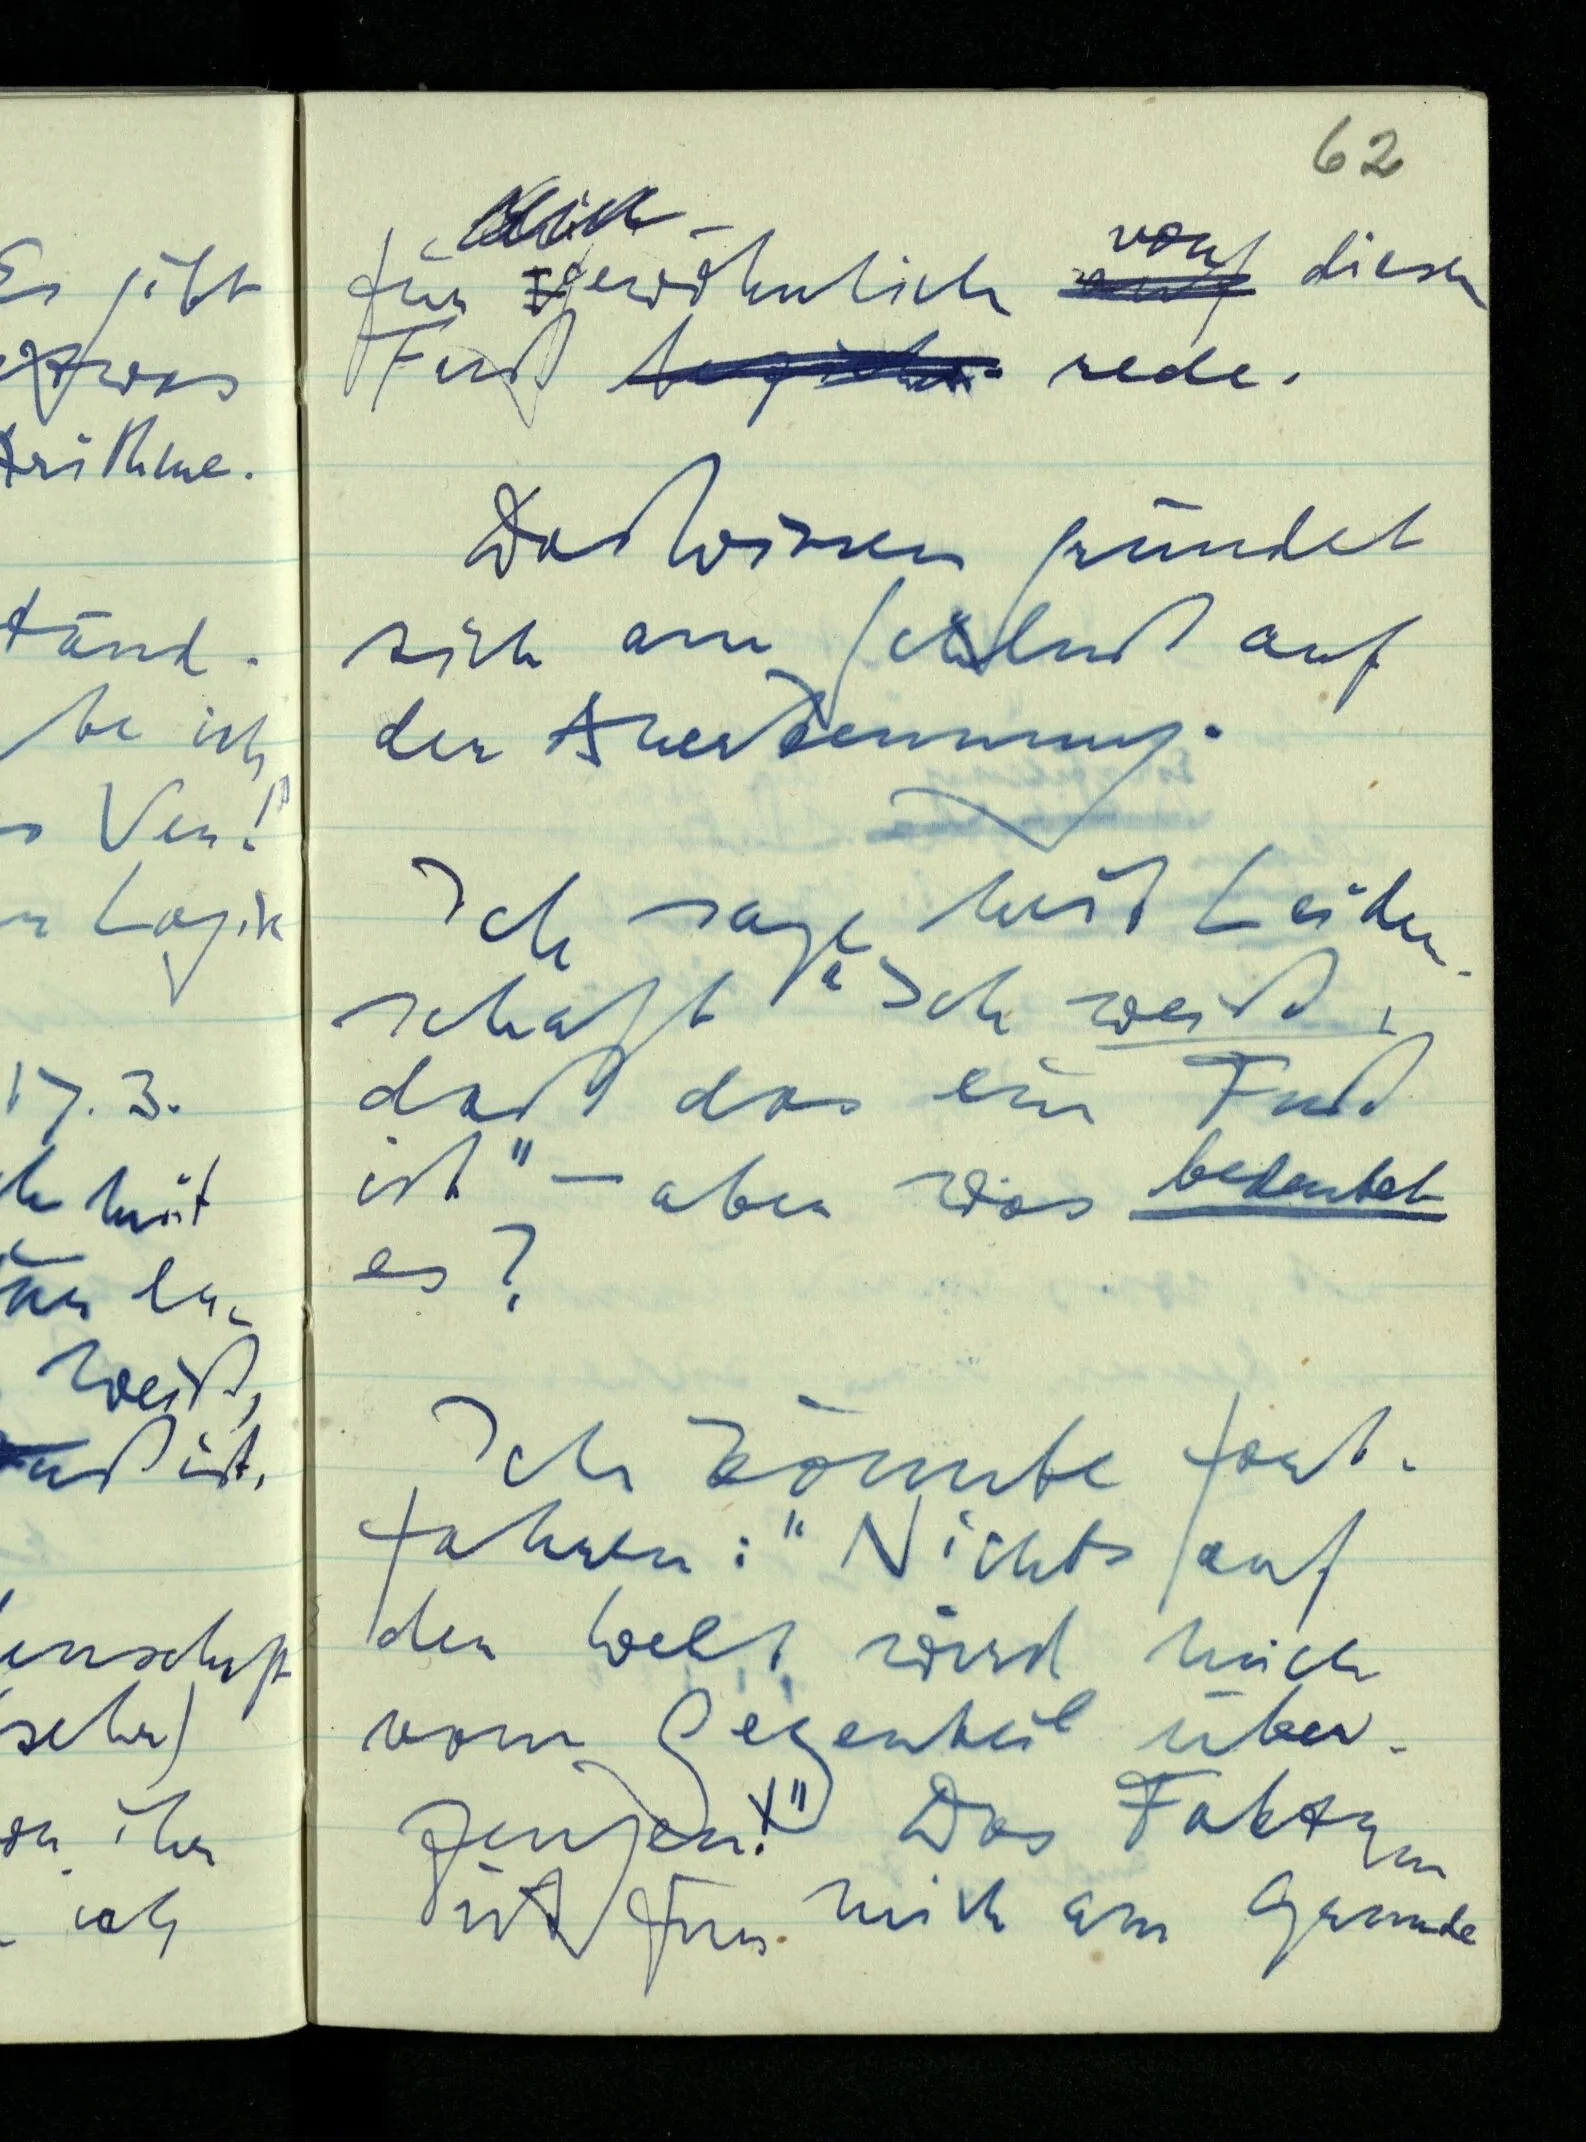 Es gibt
etwas
Arithme.
tänd-
be ich
Logik
17. 3.
mit
weiß,
Fuß ist,
enschaft
sehr)
ihr
ich
62
für gewöhnlich von diesem
Fuß rede.
Das Wissen gründet
sich am Schluß auf
der Anerkennung.
Ich sage mit Leiden-
schaft "Ich weiß,
daß das ein Fuß
ist" – aber was bedeutet
es?
Ich könnte fort-
fahren: "Nichts auf
der Welt wird mich
vom Gegenteil über-
zeugen!" Das Faktum
ist für mich am Grunde